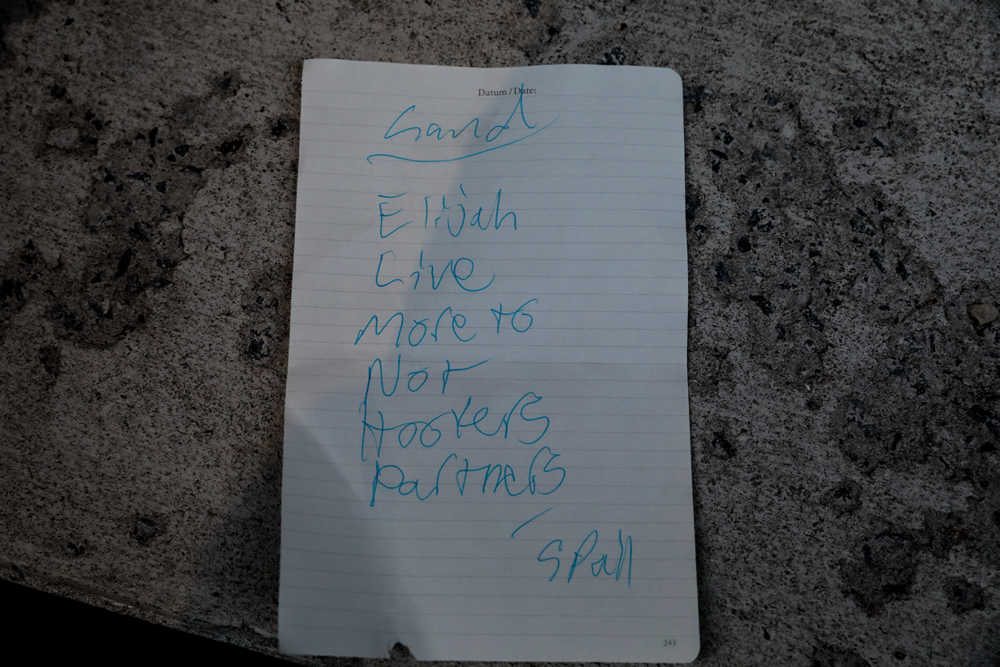 Datum / Date:
Sand
Elijah
Live
More to
Not
Hookers
Partners
Spall
245